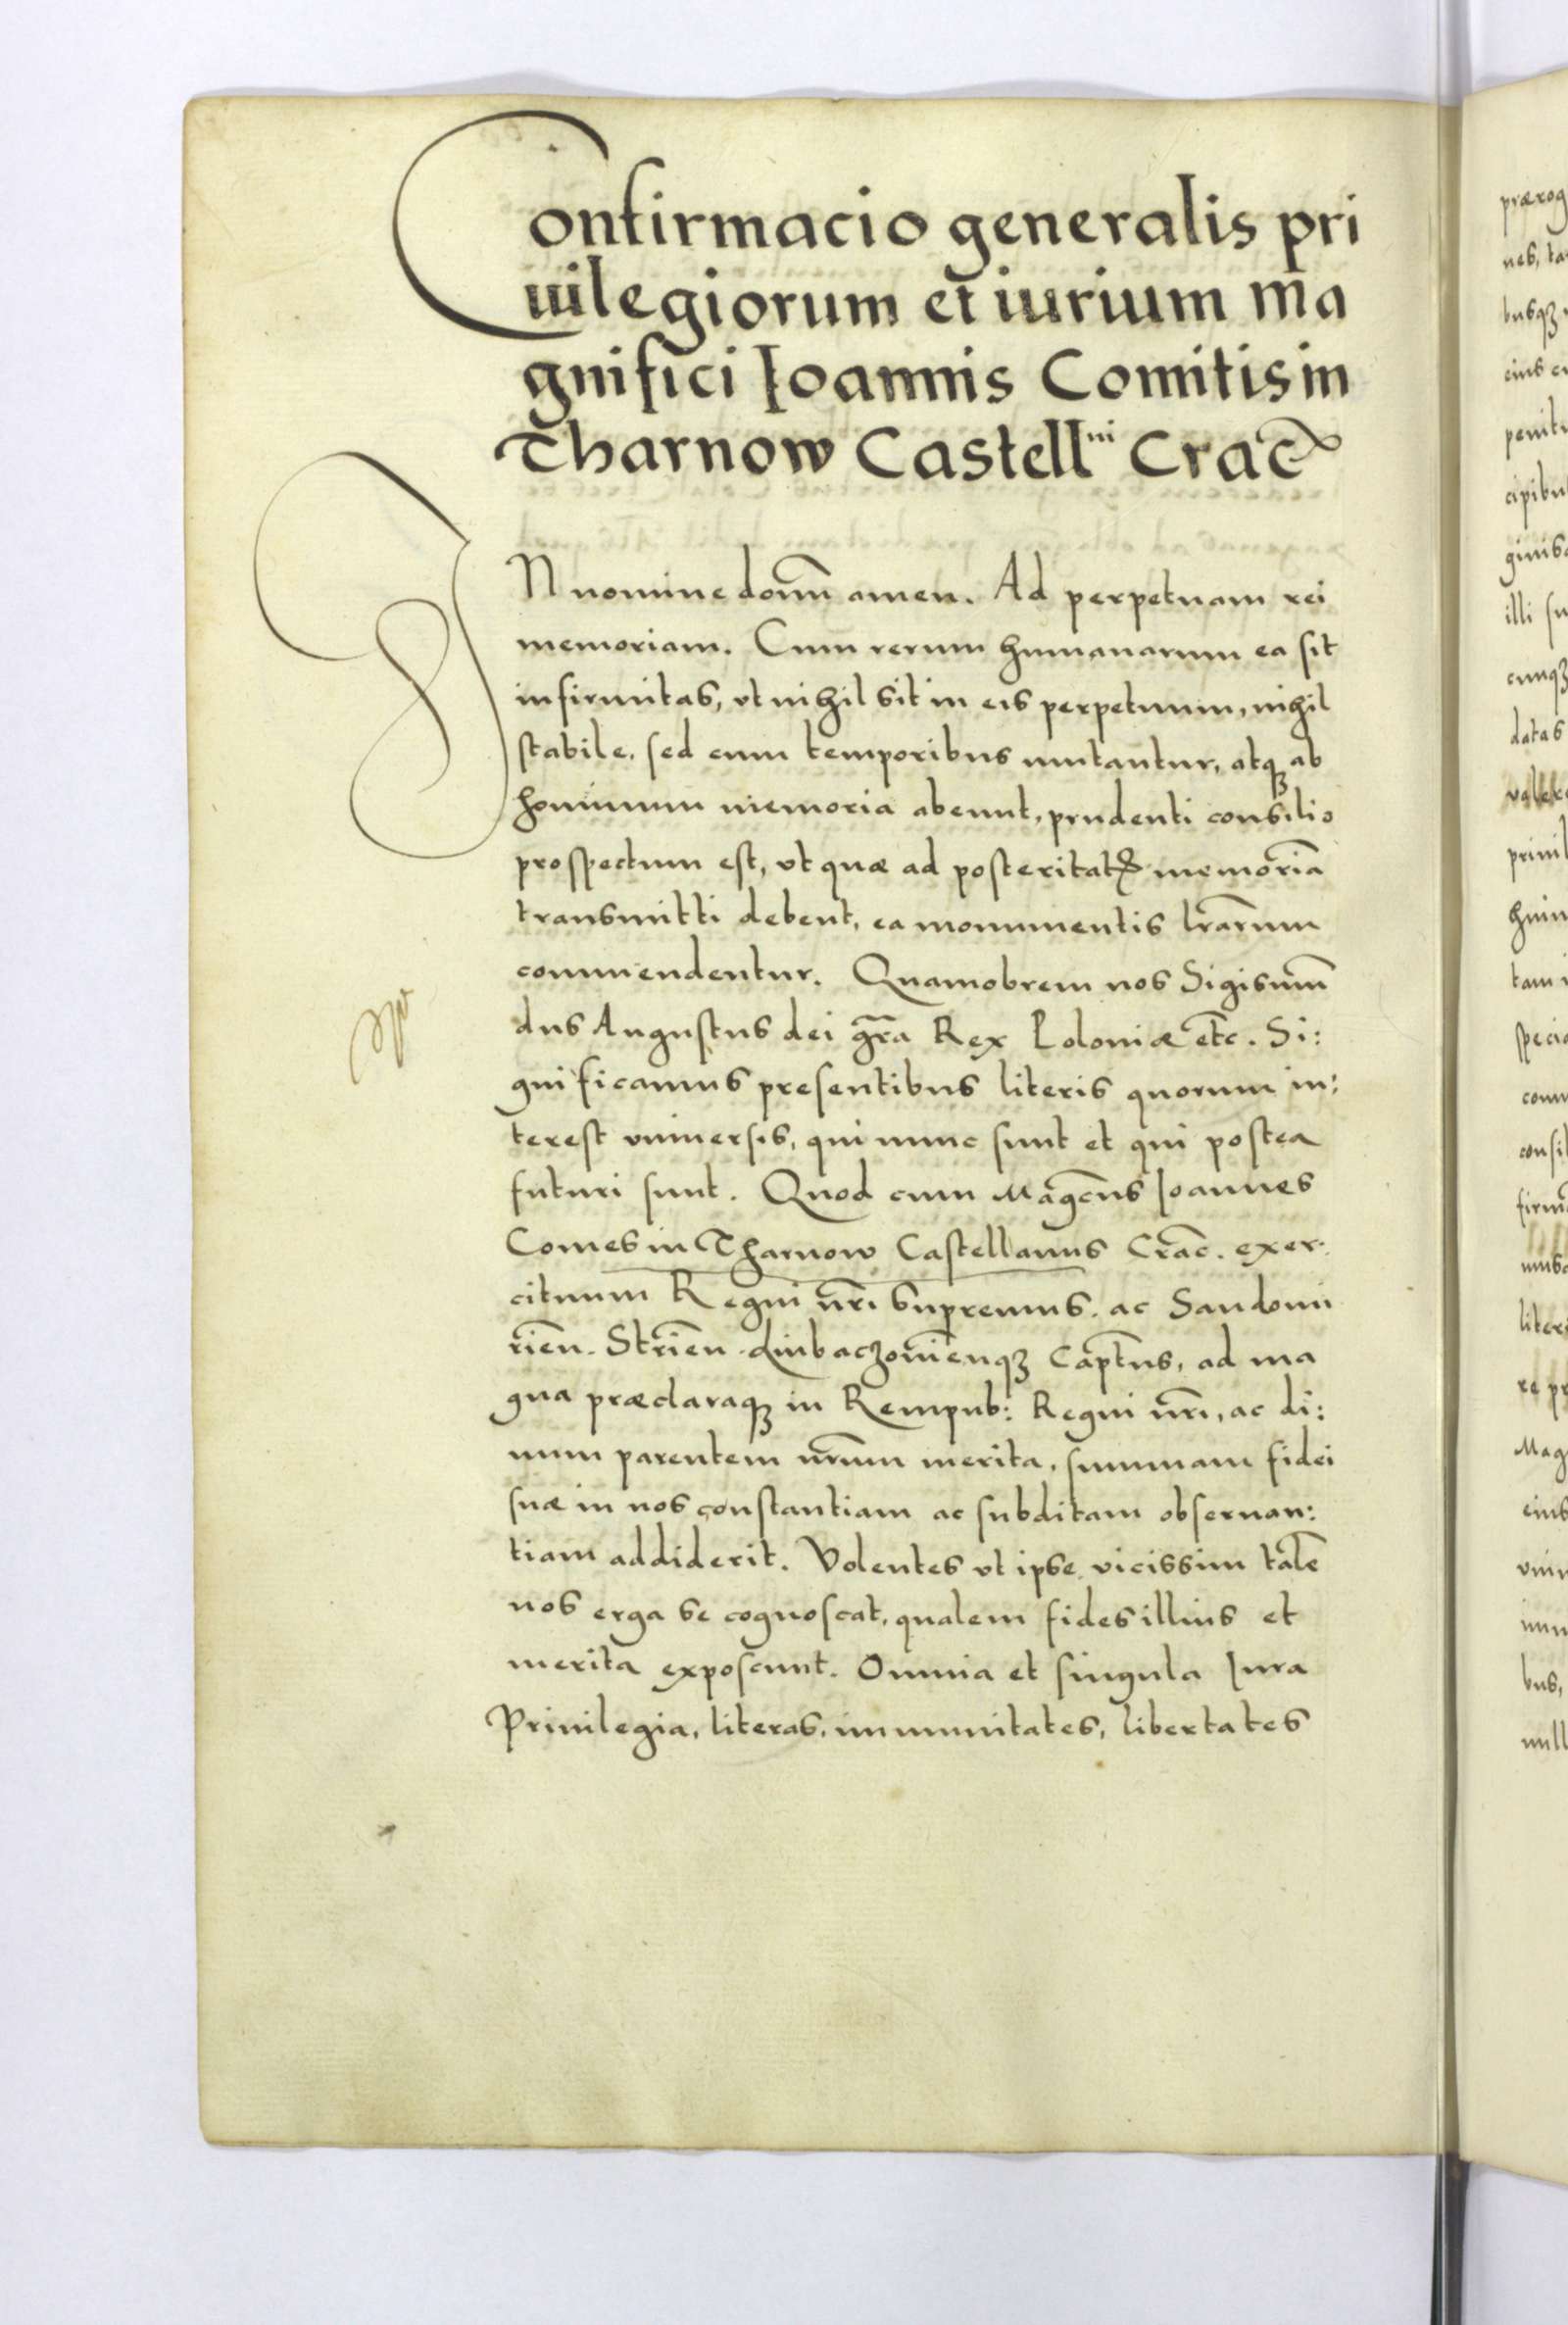 Confirmacio generalis pri
uilegiorum et iurium Ma
gnifici Ioannis Comitis in
Tharnow Castellⁿⁱ Crac̃
IN nomine domĩ amen. Ad perpetuam rei
memoriam. Cum rerum humanarum ea sit
infirmitas, vt nihil sit in eis perpetuum, nihil
stabile, sed cum temporibus mutantur, atqꝫ ab
hominum memoria abeunt, prudenti consilio
prospectum est, vt quæ ad posteritatꝭ memoriã
transmitti debent, ea monumentis lr̃arum
commendentur. Quamobrem nos Sigismũ
dus Augustus dei gr̃a Rex Poloniæ etc̃. Si:
gnificamus presentibus literis quorum in:
terest vniuersis, qui nunc sunt et qui postea
futuri sunt. Quod cum Mag̃cus Ioannes
Comes in Tharnow Castellanus Crac̃. exer.
cituum Regni nr̃i supremus. ac Sandomi
rieñ. Strieñ. Liubaczouieñqꝫ Capt̃us, ad ma
gna præclaraqꝫ in Rempub: Regni nr̃i, ac di:
uum parentem nr̃um merita, summam fidei
suæ in nos constantiam ac subditam obseruan:
tiam addiderit. Volentes vt ipse vicissim talẽ
nos erga se cognoscat, qualem fides illius et
merita exposcunt. Omnia et singula Iura
Priuilegia, literas, immunitates, libertates